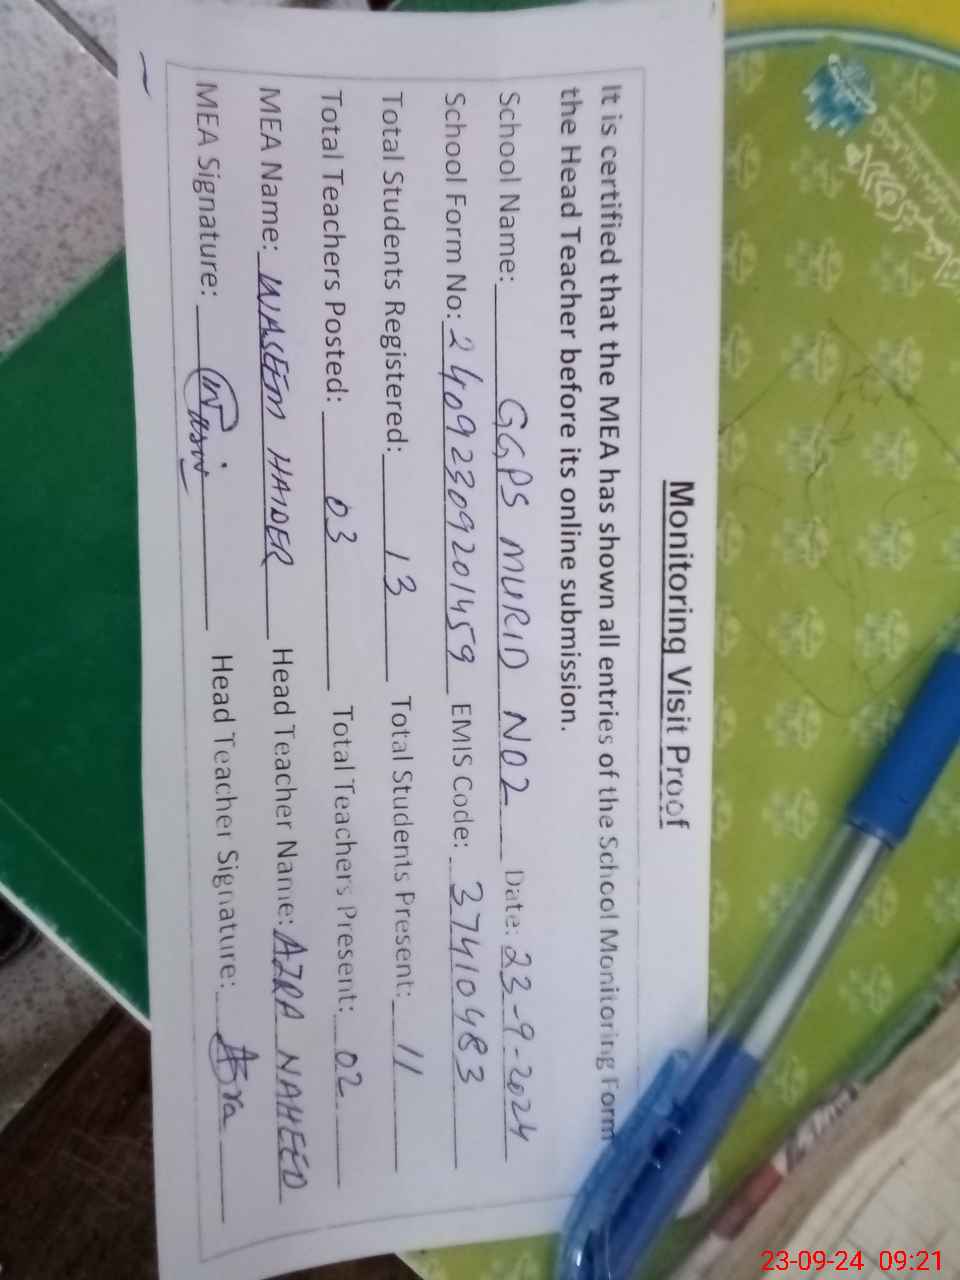 Monitoring Visit Proof
It is certified that the MEA has shown all entries of the School Monitoring Form
the Head Teacher before its online submission.
School Name: GGPS MURID NO2 Date: 23-9-2024
School Form No: 24092309201459 EMIS Code: 37410483
Total Students Registered: 13 Total Students Present: 11
Total Teachers Posted: 03 Total Teachers Present: 02
MEA Name: WASEEM HAIDER Head Teacher Name: AZRA NAHEED
MEA Signature: Head Teacher Signature:
23-09-24 09:21